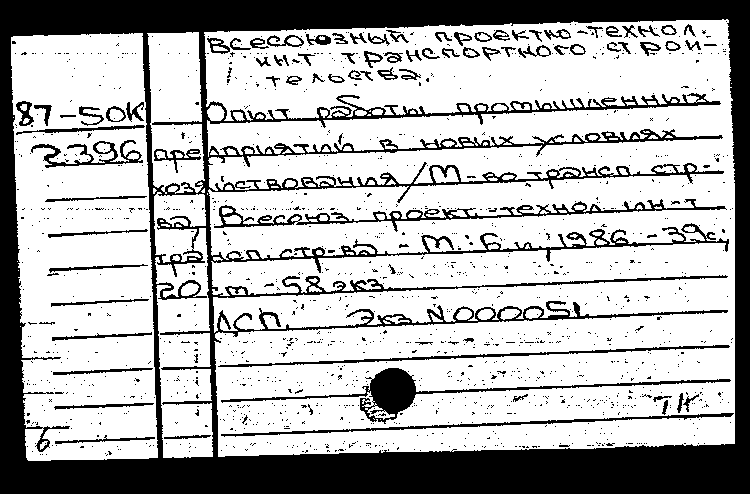 Всесоюзный проектно-технол.
ин-т транспортного строи-
тельства.
87-50К Опыт работы промышленных
2396 предприятий в новых условиях
хозяйствования / М-во трансп. стр-
ва, Всесоюз. проект.-технол. ин-т
трансп. стр-ва. - М.: Б. и., 1986. - 39 с.;
20 см. - 58 экз.
ДСП. Экз. N000051.
ТН
6